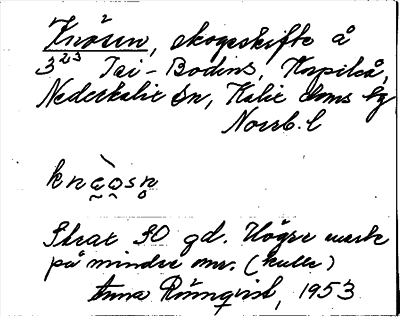 Knösen, skogsskifte å
3²³ Tai-Bodins, Korpikå,
Nederkalix sn, Kalix doms hg
Norrb. l
knɑosn
Strax SO gd. Högre mark
på mindre omr. (kulle)
Anna Rönnqvist, 1953